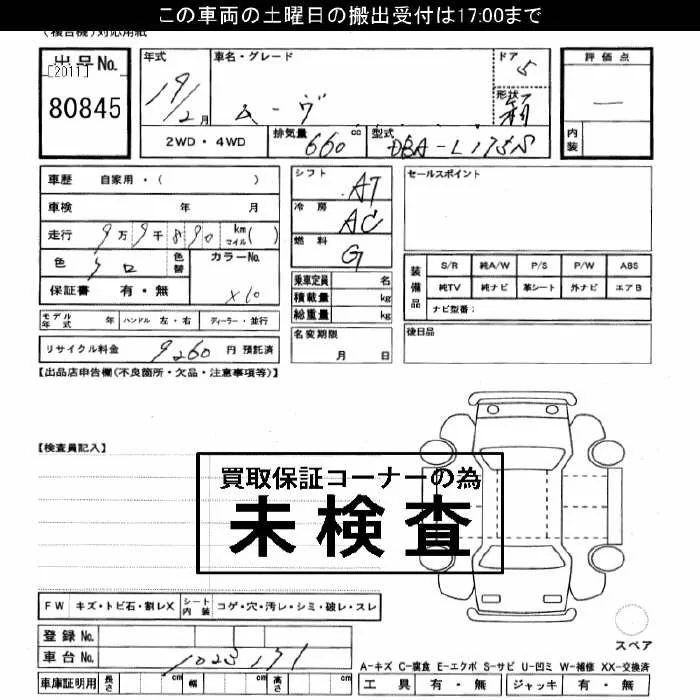 この車両の土曜日の搬出受付は17:00まで
(複合機)対応用紙
出品No. [2011] 80845
年式 19/2月
車名・グレード ムーヴ
ドア 5
形状 箱
評価点 —
内装
2WD・4WD 排気量 660 cc 型式 DBA-L175S
車歴 自家用・( )
車検 年 月
走行 9万9千890 km マイル( )
色 シロ 色替 カラーNo. X10
保証書 有・無
モデル年式 年 ハンドル 左・右 ディーラー・並行
リサイクル料金 9260 円 預託済
シフト AT
冷房 AC
燃料 G
乗車定員 名
積載量 kg
総重量 kg
名変期限 月 日
セールスポイント
装備品 S/R 純A/W P/S P/W ABS
純TV 純ナビ 革シート 外ナビ エアB
ナビ型番:
後日品
【出品店申告欄(不良箇所・欠品・注意事項等)】
【検査員記入】
買取保証コーナーの為
未検査
FW キズ・トビ石・割レX シート内装 コゲ・穴・汚レ・シミ・破レ・スレ
登録No.
車台No. 1023171
車庫証明用 長さ cm 幅 cm 高さ cm
スペア
A-キズ C-腐食 E-エクボ S-サビ U-凹ミ W-補修 XX-交換済
工具 有・無 ジャッキ 有・無